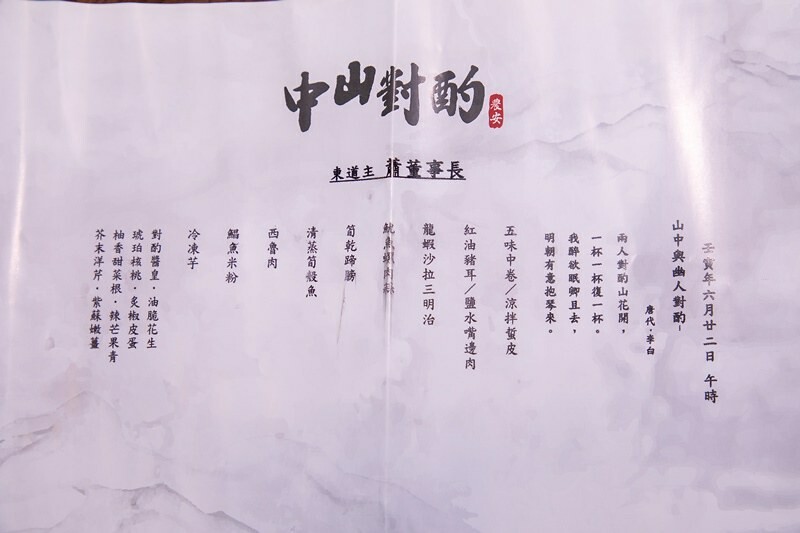 中山對酌
農安
東道主 蕭董事長
壬寅年六月廿二日 午時
山中與幽人對酌-
唐代·李白
兩人對酌山花開，
一杯一杯復一杯。
我醉欲眠卿且去，
明朝有意抱琴來。
五味中卷／涼拌蜇皮
紅油豬耳／鹽水嘴邊肉
龍蝦沙拉三明治
魷魚螺肉蒜
筍乾蹄膀
清蒸筍殼魚
西魯肉
鯧魚米粉
冷凍芋
對酌醬皇·油脆花生
琥珀核桃·炙椒皮蛋
柚香甜菜根·辣芒果青
芥末洋芹·紫蘇嫩薑